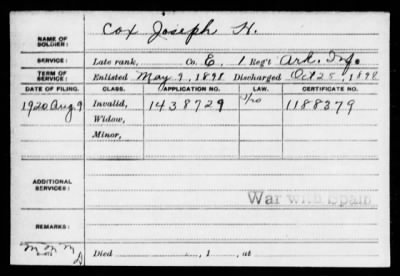 NAME OF SOLDIER: Cox Joseph H.
SERVICE: Late rank, Co. E, 1 Reg't Ark. Inf.
TERM OF SERVICE: Enlisted May 9, 1898 Discharged Oct 25, 1898
DATE OF FILING. CLASS. APPLICATION NO. LAW. CERTIFICATE NO.
1920 Aug. 9 Invalid, 1438729 1188379
Widow,
Minor,
ADDITIONAL SERVICES:
War with Spain
REMARKS:
Died , 1 , at